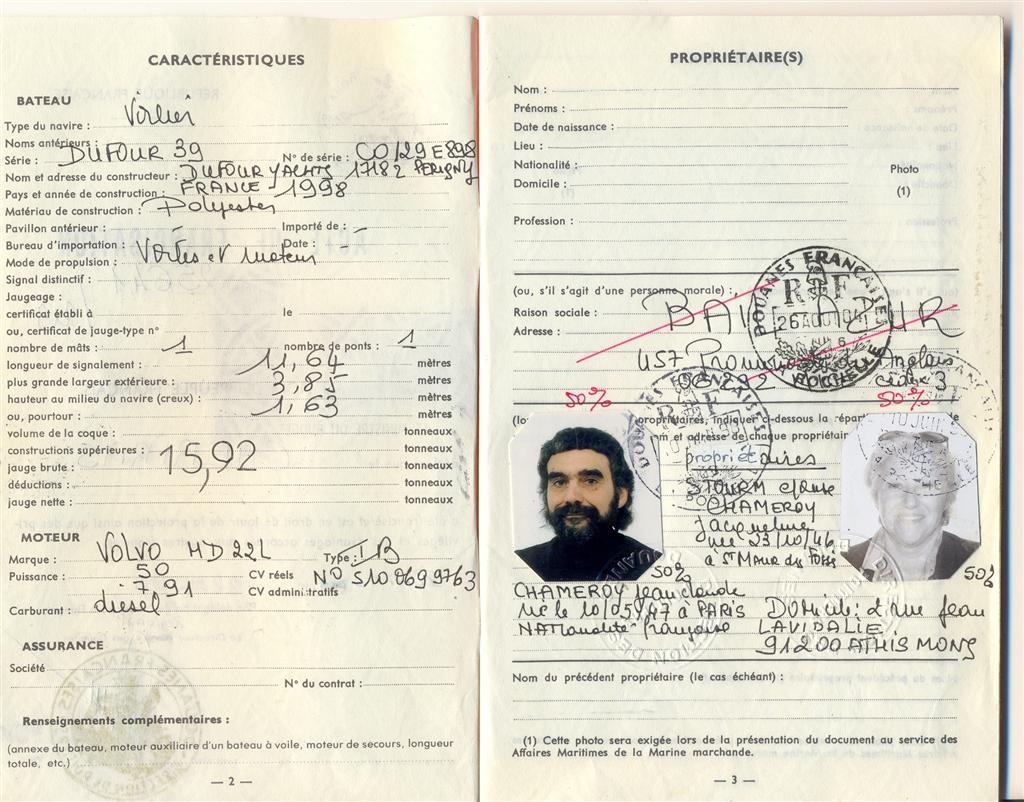 CARACTÉRISTIQUES
BATEAU
Type du navire : Voilier
Noms antérieurs :
Série : DUFOUR 39 N° de série : CO 129 E 898
Nom et adresse du constructeur : DUFOUR YACHTS 17182 PERIGNY
Pays et année de construction : FRANCE 1998
Matériau de construction : Polyester
Pavillon antérieur : - Importé de : -
Bureau d'importation : - Date : -
Mode de propulsion : Voiles et moteur
Signal distinctif :
Jaugeage :
certificat établi à le
ou, certificat de jauge-type n°
nombre de mâts : 1 nombre de ponts : 1
longueur de signalement : 11,64 mètres
plus grande largeur extérieure : 3,85 mètres
hauteur au milieu du navire (creux) : 1,63 mètres
ou, pourtour : mètres
volume de la coque : tonneaux
constructions supérieures : tonneaux
jauge brute : 15,92 tonneaux
déductions : tonneaux
jauge nette : tonneaux
MOTEUR
Marque : VOLVO MD 22L Type : I B
Puissance : 50 CV réels NO 510 069 9763
7,91 CV administratifs
Carburant : diesel
ASSURANCE
Société
N° du contrat :
Renseignements complémentaires :
(annexe du bateau, moteur auxiliaire d'un bateau à voile, moteur de secours, longueur
totale, etc.)
— 2 —
PROPRIÉTAIRE(S)
Nom :
Prénoms :
Date de naissance :
Lieu :
Nationalité : Photo
Domicile : (1)
Profession :
(ou, s'il s'agit d'une personne morale) :
Raison sociale :
Adresse :
457 Promenade Anglais
cedex 3
DOUANES FRANÇAISES
RF
26 AOUT 04
LA ROCHELLE
50% 50%
propriétaires, indiquer ci-dessous la
et adresse de chaque
propriétaires
STOURM épouse
CHAMEROY
Jacqueline
née 23/10/46
à St Maur des Fossés
50% 50%
CHAMEROY Jean claude
né le 10/05/47 à PARIS Domicile : 2 rue Jean
NATionalité française LAVIDALIE
91200 ATHIS MONS
Nom du précédent propriétaire (le cas échéant) :
(1) Cette photo sera exigée lors de la présentation du document au service des
Affaires Maritimes de la Marine marchande.
— 3 —